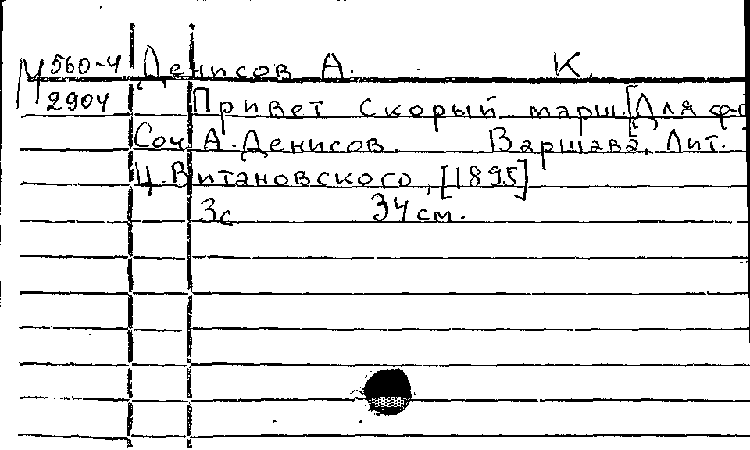 М 560-4 Денисов А. К.
2904 Привет Скорый марш. [Для фо
Соч. А. Денисов. Варшава, Лит.
Ц. Витановского, [1895]
3с 34 см.